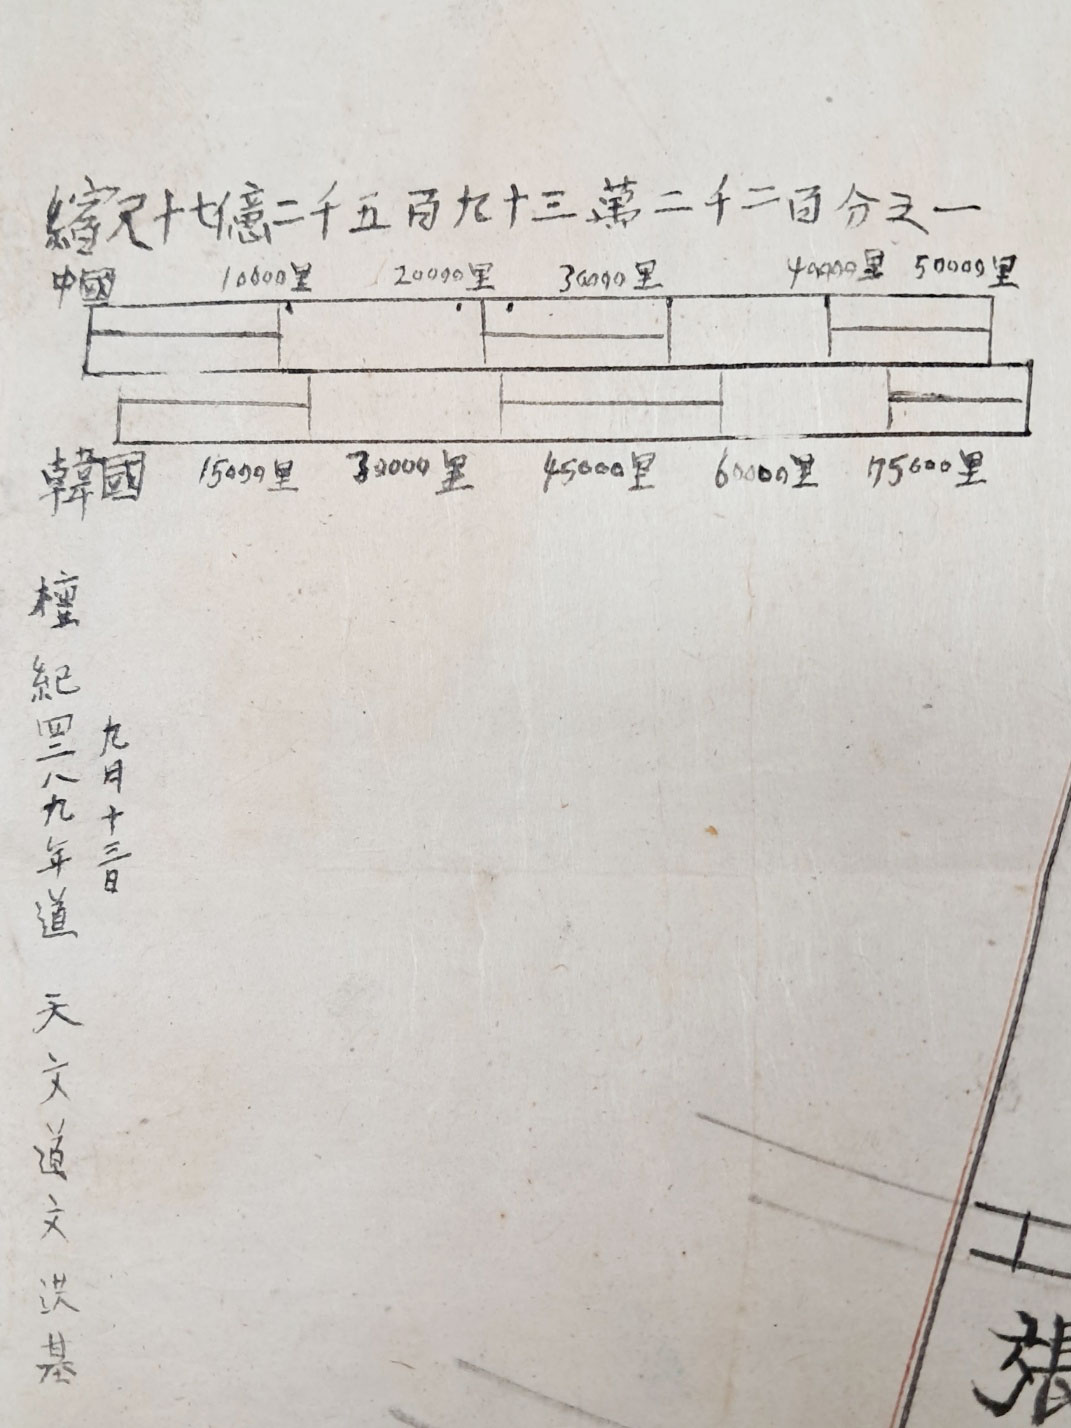 縮尺十七億二千五百九十三萬二千二百分之一
中國 10000里 20000里 30000里 40000里 50000里
韓國 15000里 30000里 45000里 60000里 75000里
檀紀四二八九年道 天文道文 洪基
九月十三日
張